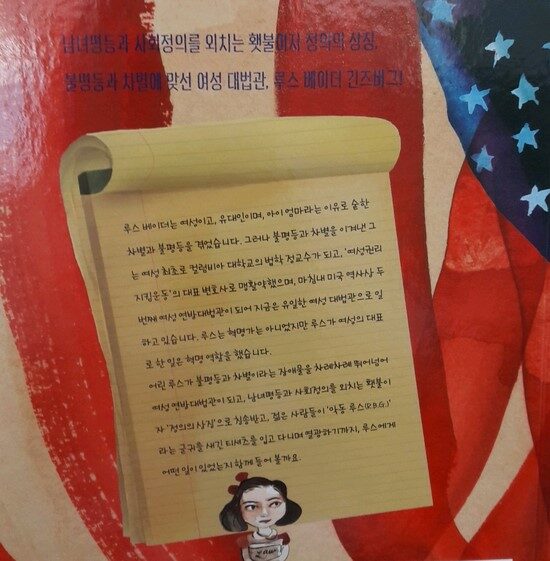 남녀평등과 사회정의를 외치는 횃불이자 정의의 상징,
불평등과 차별에 맞선 여성 대법관, 루스 베이더 긴즈버그!
루스 베이더는 여성이고, 유대인이며, 아이 엄마라는 이유로 숱한
차별과 불평등을 겪었습니다. 그러나 불평등과 차별을 이겨낸 그
는 여성 최초로 컬럼비아 대학교의 법학 정교수가 되고, '여성권리
지킴운동'의 대표 변호사로 맹활약했으며, 마침내 미국 역사상 두
번째 여성 연방대법관이 되어 지금은 유일한 여성 대법관으로 일
하고 있습니다. 루스는 혁명가는 아니었지만 루스가 여성의 대표
로 한 일은 혁명 역할을 했습니다.
어린 루스가 불평등과 차별이라는 장애물을 차례차례 뛰어넘어
여성 연방대법관이 되고, 남녀평등과 사회정의를 외치는 횃불이
자 '정의의 상징'으로 칭송받고, 젊은 사람들이 '악동 루스(R.B.G.)'
라는 글귀를 새긴 티셔츠를 입고 다니며 열광하기까지, 루스에게
어떤 일이 있었는지 함께 들어 볼까요.